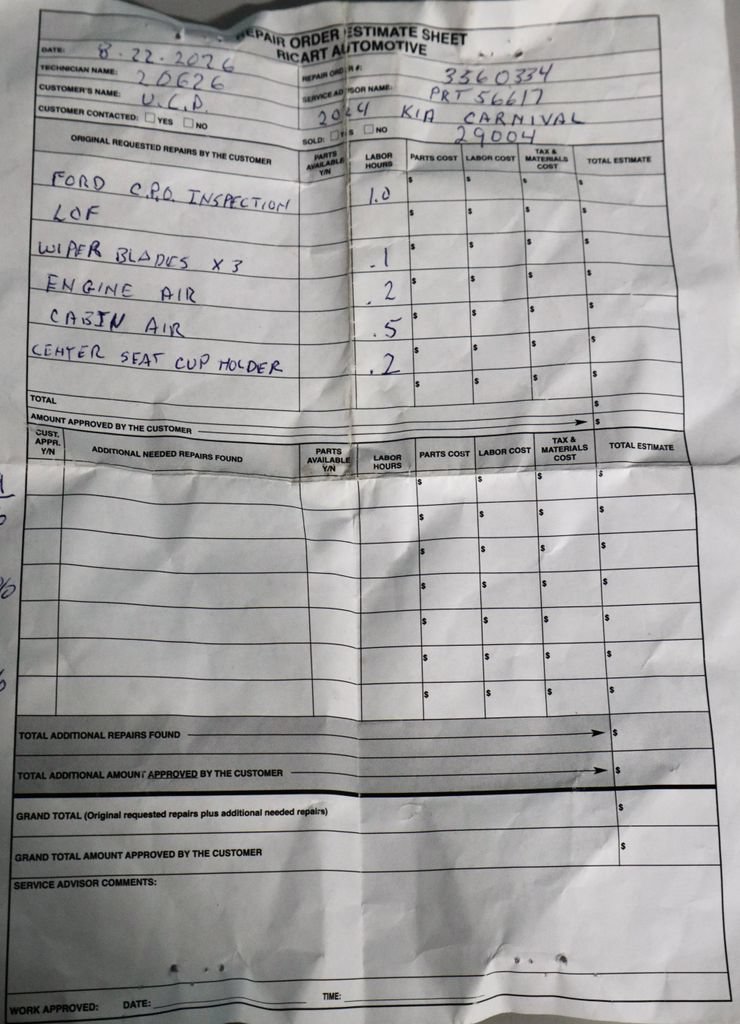 REPAIR ORDER ESTIMATE SHEET
RICART AUTOMOTIVE
DATE: 8.22.2026
REPAIR ORDER #: 3360334
TECHNICIAN NAME: 20626
SERVICE ADVISOR NAME: PRT 56617
CUSTOMER'S NAME: U.C.D.
2024 KIA CARNIVAL
CUSTOMER CONTACTED: ☐ YES ☐ NO
SOLD: ☐ YES ☐ NO 29004
ORIGINAL REQUESTED REPAIRS BY THE CUSTOMER PARTS AVAILABLE Y/N LABOR HOURS PARTS COST LABOR COST TAX & MATERIALS COST TOTAL ESTIMATE
FORD C.P.O. INSPECTION 1.0 $ $ $ $
LOF $ $ $ $
WIPER BLADES X 3 .1 $ $ $ $
ENGINE AIR .2 $ $ $ $
CABIN AIR .5 $ $ $ $
CENTER SEAT CUP HOLDER .2 $ $ $ $
$ $ $ $
TOTAL $
AMOUNT APPROVED BY THE CUSTOMER $
CUST. APPR. Y/N ADDITIONAL NEEDED REPAIRS FOUND PARTS AVAILABLE Y/N LABOR HOURS PARTS COST LABOR COST TAX & MATERIALS COST TOTAL ESTIMATE
$ $ $ $
$ $ $ $
$ $ $ $
$ $ $ $
$ $ $ $
$ $ $ $
$ $ $ $
TOTAL ADDITIONAL REPAIRS FOUND $
TOTAL ADDITIONAL AMOUNT APPROVED BY THE CUSTOMER $
GRAND TOTAL (Original requested repairs plus additional needed repairs) $
GRAND TOTAL AMOUNT APPROVED BY THE CUSTOMER $
SERVICE ADVISOR COMMENTS:
WORK APPROVED: DATE: TIME: